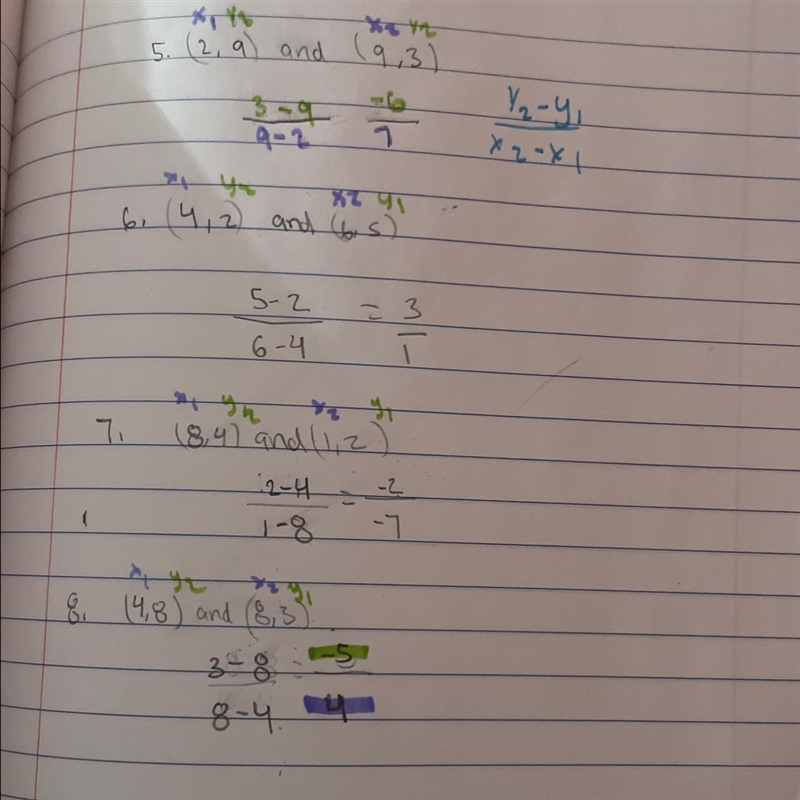 x₁ y₂ x₂ y₂
5. (2, 9) and (9, 3)
3-9 / 9-2 -6 / 7 y₂-y₁ / x₂-x₁
x₁ y₂ x₂ y₁
6. (4, 2) and (6, 5)
5-2 / 6-4 = 3 / 1
x₁ y₂ x₂ y₁
7. (8, 4) and (1, 2)
2-4 / 1-8 = -2 / -7
x₁ y₂ x₂ y₁
8. (4, 8) and (8, 3)
3-8 / 8-4 = -5 / 4